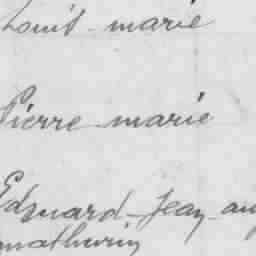 Louis marie
Pierre marie
Edouard Jean
mathurin